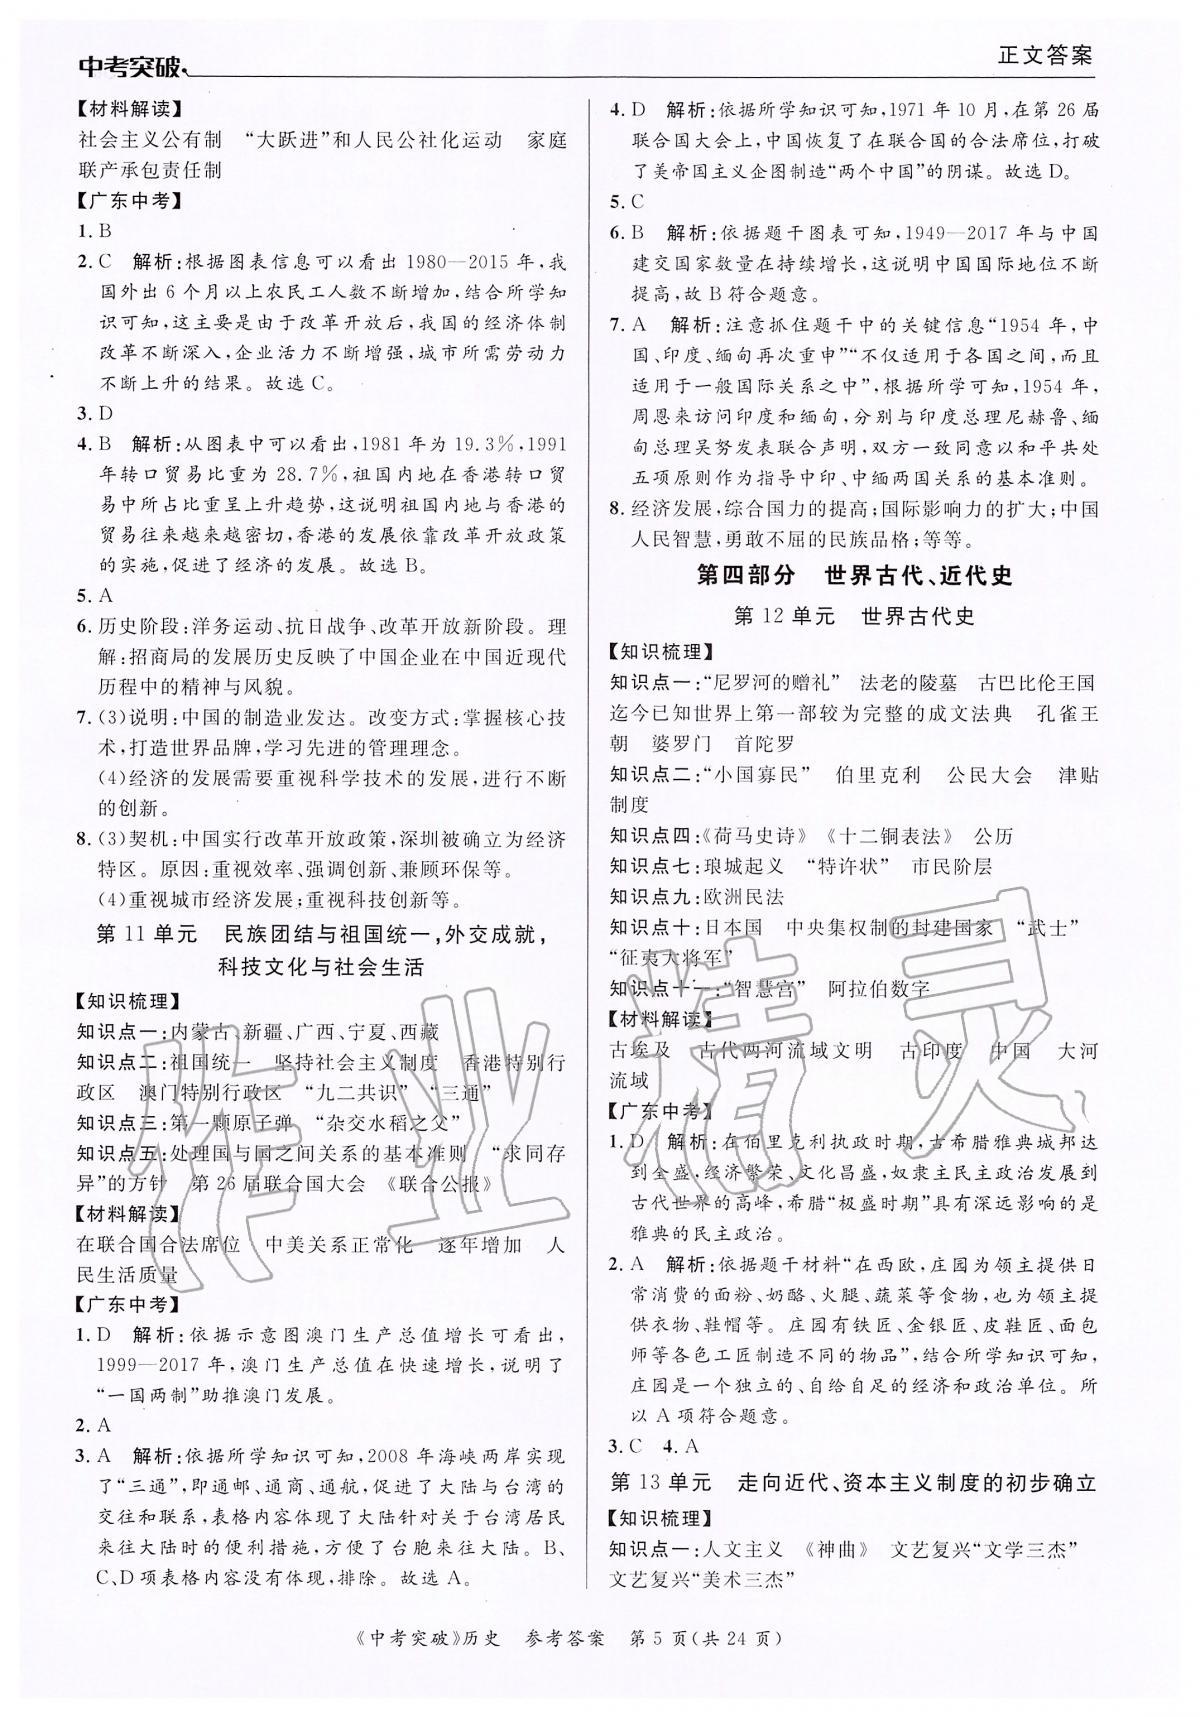 中考突破
正文答案
【材料解读】
社会主义公有制　“大跃进”和人民公社化运动　家庭
联产承包责任制
【广东中考】
1. B
2. C　解析:根据图表信息可以看出 1980—2015 年,我
国外出 6 个月以上农民工人数不断增加,结合所学知
识可知,这主要是由于改革开放后,我国的经济体制
改革不断深入,企业活力不断增强,城市所需劳动力
不断上升的结果。故选 C。
3. D
4. B　解析:从图表中可以看出,1981 年为 19.3%,1991
年转口贸易比重为 28.7%,祖国内地在香港转口贸
易中所占比重呈上升趋势,这说明祖国内地与香港的
贸易往来越来越密切,香港的发展依靠改革开放政策
的实施,促进了经济的发展。故选 B。
5. A
6. 历史阶段:洋务运动、抗日战争、改革开放新阶段。理
解:招商局的发展历史反映了中国企业在中国近现代
历程中的精神与风貌。
7. (3)说明:中国的制造业发达。改变方式:掌握核心技
术,打造世界品牌,学习先进的管理理念。
(4)经济的发展需要重视科学技术的发展,进行不断
的创新。
8. (3)契机:中国实行改革开放政策,深圳被确立为经济
特区。原因:重视效率、强调创新、兼顾环保等。
(4)重视城市经济发展;重视科技创新等。
第 11 单元　民族团结与祖国统一,外交成就,
科技文化与社会生活
【知识梳理】
知识点一:内蒙古、新疆、广西、宁夏、西藏
知识点二:祖国统一　坚持社会主义制度　香港特别行
政区　澳门特别行政区　“九二共识”　“三通”
知识点三:第一颗原子弹　“杂交水稻之父”
知识点五:处理国与国之间关系的基本准则　“求同存
异”的方针　第 26 届联合国大会　《联合公报》
【材料解读】
在联合国合法席位　中美关系正常化　逐年增加　人
民生活质量
【广东中考】
1. D　解析:依据示意图澳门生产总值增长可看出,
1999—2017 年,澳门生产总值在快速增长,说明了
“一国两制”助推澳门发展。
2. A
3. A　解析:依据所学知识可知,2008 年海峡两岸实现
了“三通”,即通邮、通商、通航,促进了大陆与台湾的
交往和联系,表格内容体现了大陆针对关于台湾居民
来往大陆时的便利措施,方便了台胞来往大陆。B、
C、D 项表格内容没有体现,排除。故选 A。
4. D　解析:依据所学知识可知,1971 年 10 月,在第 26 届
联合国大会上,中国恢复了在联合国的合法席位,打破
了美帝国主义企图制造“两个中国”的阴谋。故选 D。
5. C
6. B　解析:依据题干图表可知,1949—2017 年与中国
建交国家数量在持续增长,这说明中国国际地位不断
提高,故 B 符合题意。
7. A　解析:注意抓住题干中的关键信息“1954 年,中
国、印度、缅甸再次重申”“不仅适用于各国之间,而且
适用于一般国际关系之中”,根据所学可知,1954 年,
周恩来访问印度和缅甸,分别与印度总理尼赫鲁、缅
甸总理吴努发表联合声明,双方一致同意以和平共处
五项原则作为指导中印、中缅两国关系的基本准则。
8. 经济发展,综合国力的提高;国际影响力的扩大;中国
人民智慧,勇敢不屈的民族品格;等等。
第四部分　世界古代、近代史
第 12 单元　世界古代史
【知识梳理】
知识点一:“尼罗河的赠礼”　法老的陵墓　古巴比伦王国
迄今已知世界上第一部较为完整的成文法典　孔雀王
朝　婆罗门　首陀罗
知识点二:“小国寡民”　伯里克利　公民大会　津贴
制度
知识点四:《荷马史诗》《十二铜表法》　公历
知识点七:琅城起义　“特许状”　市民阶层
知识点九:欧洲民法
知识点十:日本国　中央集权制的封建国家　“武士”
“征夷大将军”
知识点十一:“智慧宫”　阿拉伯数字
【材料解读】
古埃及　古代两河流域文明　古印度　中国　大河
流域
【广东中考】
1. D　解析:在伯里克利执政时期,古希腊雅典城邦达
到全盛,经济繁荣、文化昌盛,奴隶主民主政治发展到
古代世界的高峰,希腊“极盛时期”具有深远影响的是
雅典的民主政治。
2. A　解析:依据题干材料“在西欧,庄园为领主提供日
常消费的面粉、奶酪、火腿、蔬菜等食物,也为领主提
供衣物、鞋帽等。庄园有铁匠、金银匠、皮鞋匠、面包
师等各色工匠制造不同的物品”,结合所学知识可知,
庄园是一个独立的、自给自足的经济和政治单位。所
以 A 项符合题意。
3. C　4. A
第 13 单元　走向近代、资本主义制度的初步确立
【知识梳理】
知识点一:人文主义　《神曲》　文艺复兴“文学三杰”
文艺复兴“美术三杰”
《中考突破》历史　参考答案　第 5 页(共 24 页)
作业精灵